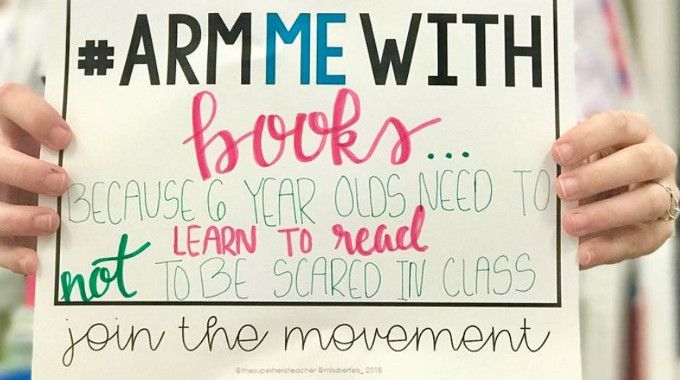 #ARMMEWITH
books...
BECAUSE 6 YEAR OLDS NEED TO
LEARN TO read
not TO BE SCARED IN CLASS
join the movement
@thesuperheroteacher @missbertels_ 2018